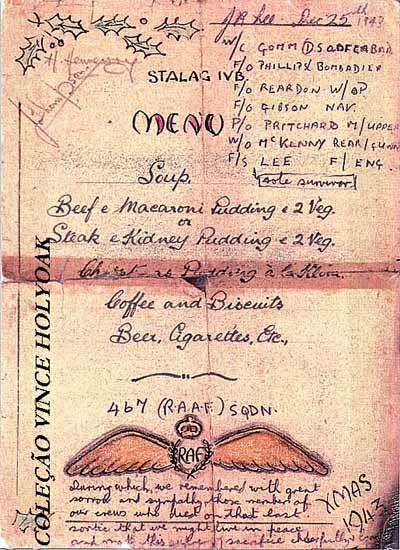 J.A. Lee - Dec 25th 1943
W/C GOMM DSO DFC & BAR
F/O PHILLIPS BOMBADIER
F/O REARDON W/OP
F/O GIBSON NAV.
P/O PRITCHARD M/UPPER
W/O McKENNY REAR/GUNN
F/S LEE F/ENG.
sole survivor
STALAG IVB.
MENU
Soup.
Beef & Macaroni Pudding & 2 Veg.
or
Steak & Kidney Pudding & 2 Veg.
Christmas Pudding à la Klim.
Coffee and Biscuits
Beer, Cigarettes, Etc.,
467 (R.A.A.F.) SQDN.
RAF
During which, we remembered with great
sorrow and sympathy those members of
our crews who died on that last
sortie that we might live in peace
and sacrifice cheerfully
XMAS
1943
COLEÇÃO VINCE HOLYOAK